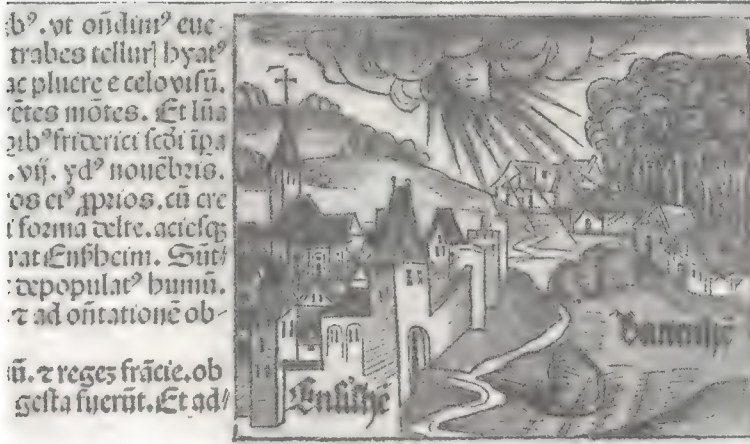 ib⁹. vt oñdim⁹ eue-
trabes telluri hyat⁹
ac pluere e celo visū.
rētes mōtes. Et lūa
gib⁹ friderici scdi īpa
. vij. yd⁹ nouēbris.
ros ei⁹ ꝓprios. cū cre
i forma delte. aciesqꝫ
rat Enßheim. Sūt/
: depopulat⁹ humū.
ꝛ ad oñtationē ob-
iū. ꝛ reges frācie. ob
gesta fuerūt. Et ad/
Battenhē
Ensißhē